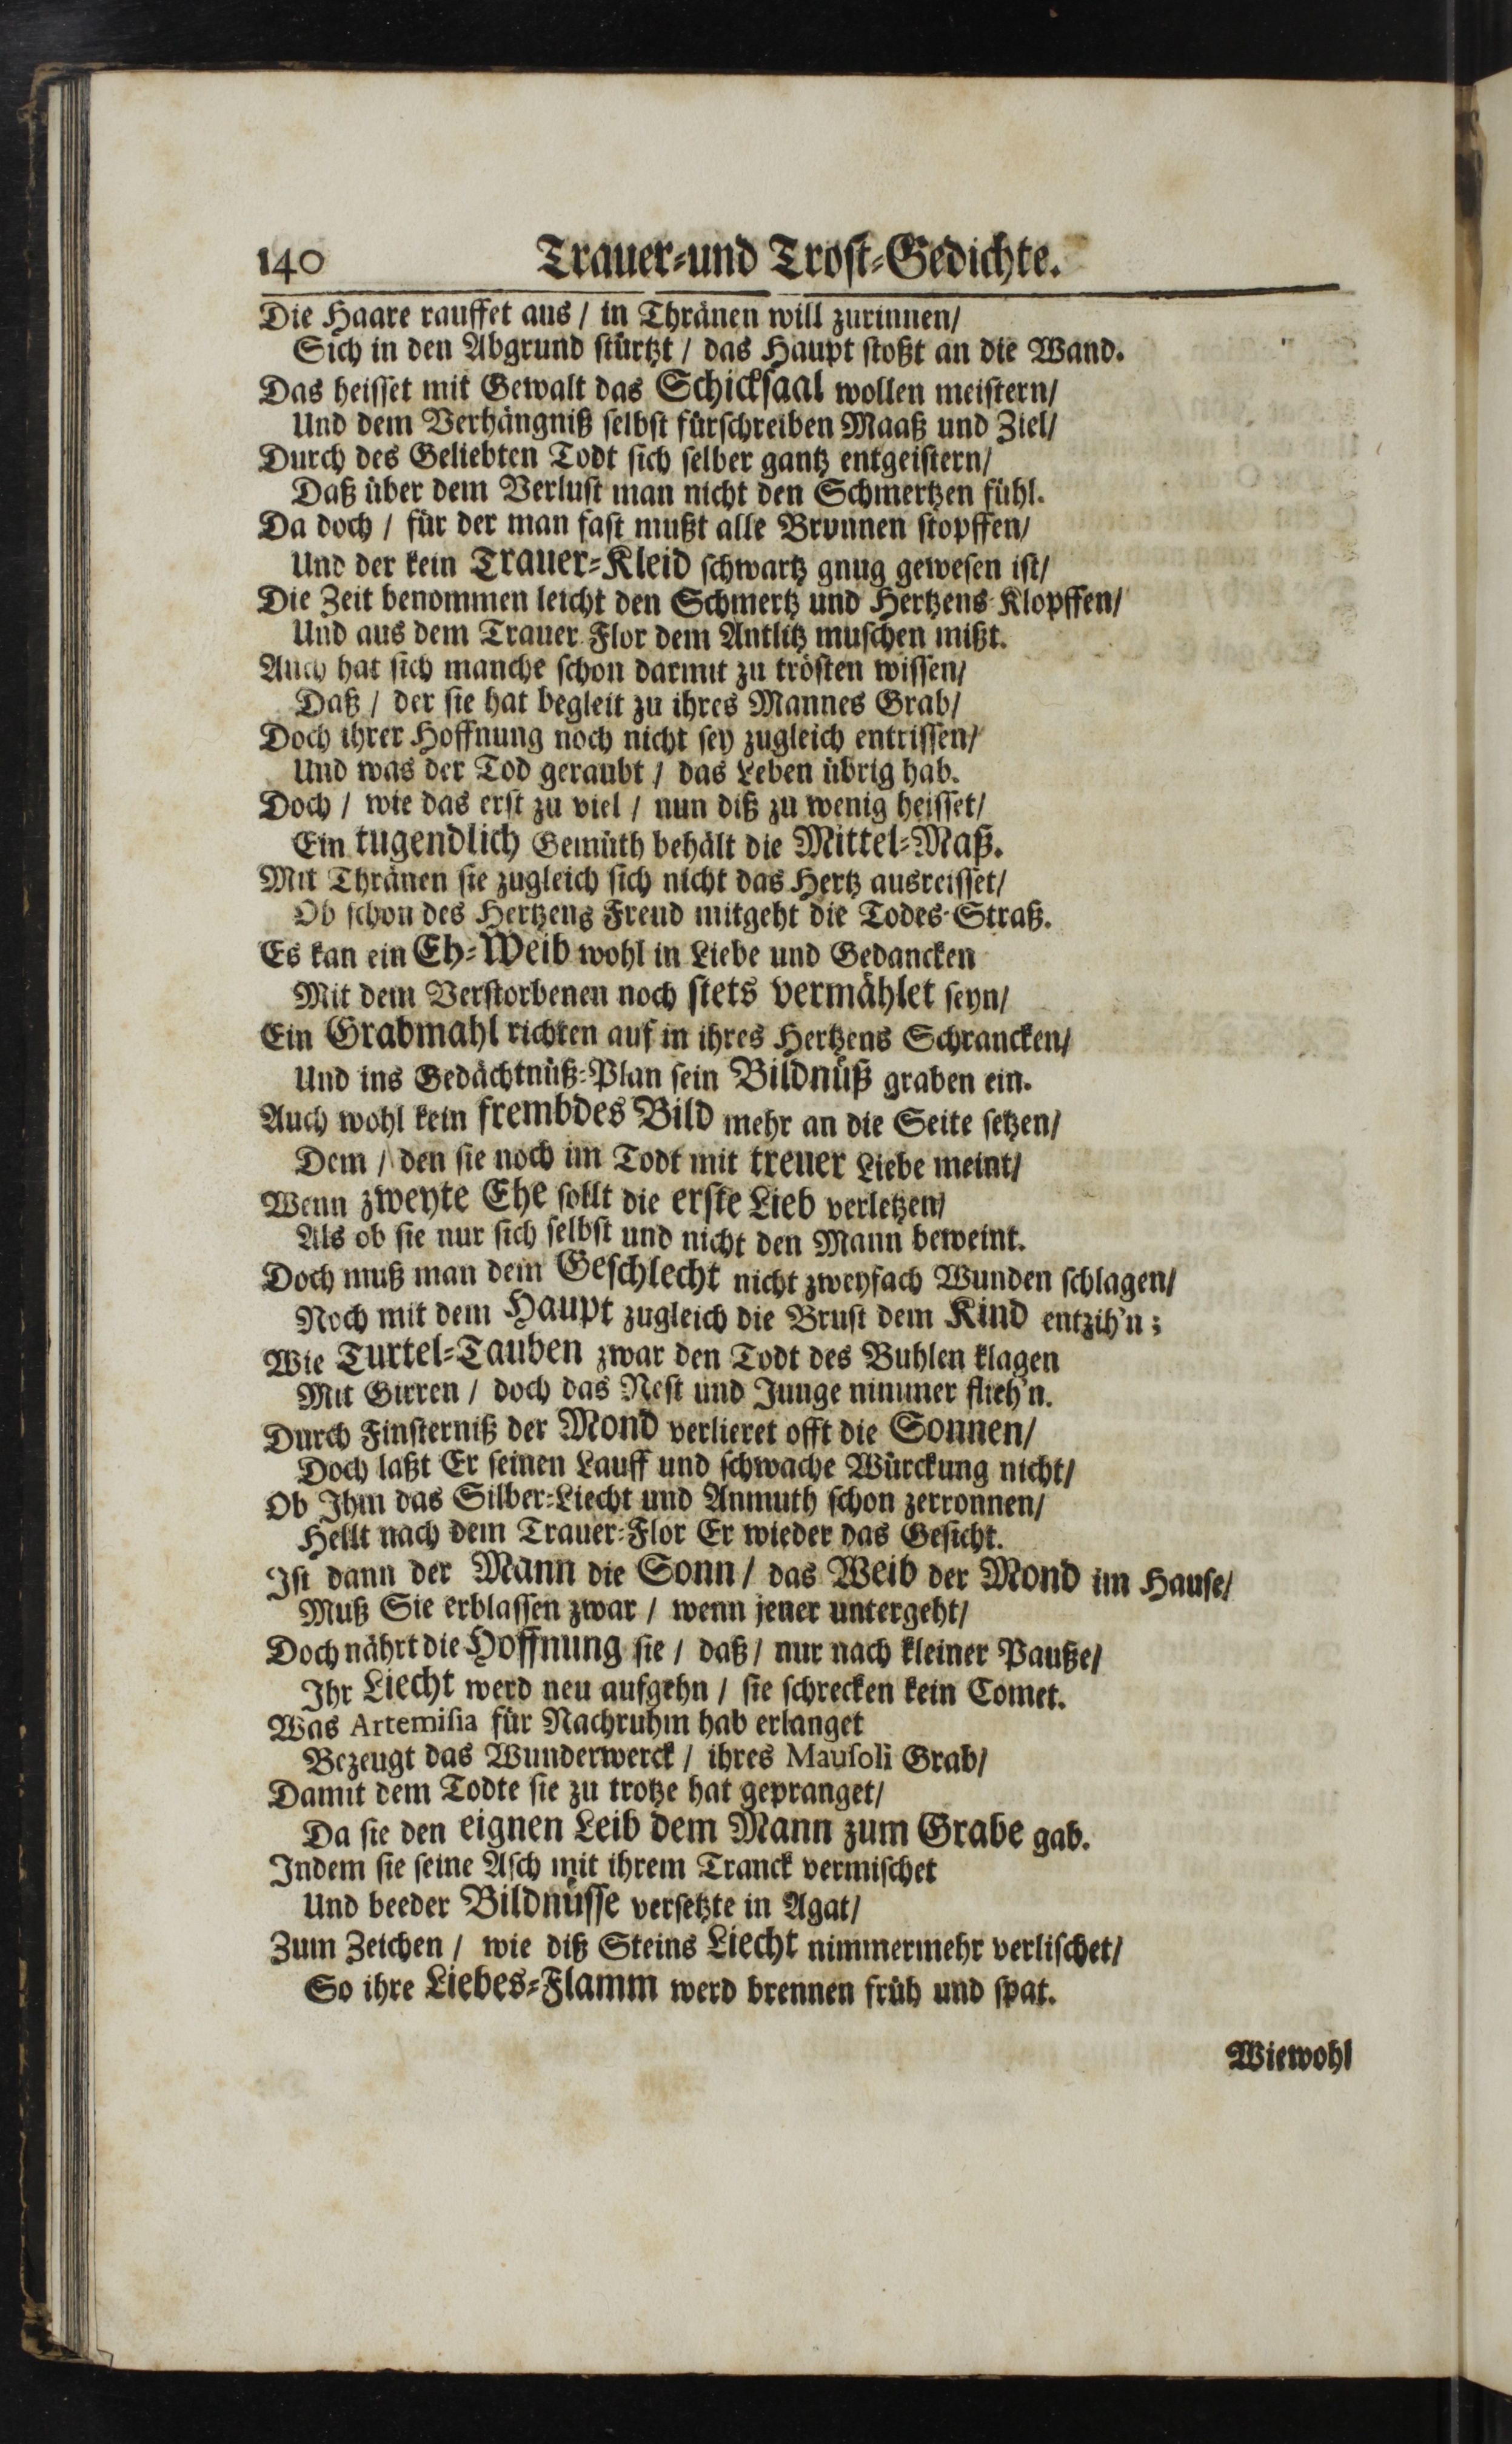 140 Trauer-und Trost-Gedichte.
Die Haare rauffet aus / in Thränen will zurinnen/
Sich in den Abgrund stürtzt / das Haupt stoßt an die Wand.
Das heisset mit Gewalt das Schicksaal wollen meistern/
Und dem Verhängniß selbst fürschreiben Maaß und Ziel/
Durch des Geliebten Todt sich selber gantz entgeistern/
Daß über dem Verlust man nicht den Schmertzen fühl.
Da doch / für der man fast mußt alle Brunnen stopffen/
Und der kein Trauer-Kleid schwartz gnug gewesen ist/
Die Zeit benommen leicht den Schmertz und Hertzens-Klopffen/
Und aus dem Trauer-Flor dem Antlitz muschen mißt.
Auch hat sich manche schon darmit zu trösten wissen/
Daß / der sie hat begleit zu ihres Mannes Grab/
Doch ihrer Hoffnung noch nicht sey zugleich entrissen/
Und was der Tod geraubt / das Leben übrig hab.
Doch / wie das erst zu viel / nun diß zu wenig heisset/
Ein tugendlich Gemüth behält die Mittel-Maß.
Mit Thränen sie zugleich sich nicht das Hertz ausreisset/
Ob schon des Hertzens Freud mitgeht die Todes-Straß.
Es kan ein Eh-Weib wohl in Liebe und Gedancken
Mit dem Verstorbenen noch stets vermählet seyn/
Ein Grabmahl richten auf in ihres Hertzens Schrancken/
Und ins Gedächtnüß-Plan sein Bildnüß graben ein.
Auch wohl kein frembdes Bild mehr an die Seite setzen/
Dem / den sie noch im Todt mit treuer Liebe meint/
Wenn zweyte Ehe sollt die erste Lieb verletzen/
Als ob sie nur sich selbst und nicht den Mann beweint.
Doch muß man dem Geschlecht nicht zweyfach Wunden schlagen/
Noch mit dem Haupt zugleich die Brust dem Kind entzih'n;
Wie Turtel-Tauben zwar den Todt des Buhlen klagen
Mit Girren / doch das Nest und Junge nimmer flieh'n.
Durch Finsterniß der Mond verlieret offt die Sonnen/
Doch laßt Er seinen Lauff und schwache Würckung nicht/
Ob Ihm das Silber-Liecht und Anmuth schon zerronnen/
Hellt nach dem Trauer-Flor Er wieder das Gesicht.
Ist dann der Mann die Sonn / das Weib der Mond im Hause/
Muß Sie erblassen zwar / wenn jener untergeht/
Doch nährt die Hoffnung sie / daß / nur nach kleiner Pauße/
Ihr Liecht werd neu aufgehn / sie schrecken kein Comet.
Was Artemisia für Nachruhm hab erlanget
Bezeugt das Wunderwerck / ihres Mausoli Grab/
Damit dem Todte sie zu trotze hat gepranget/
Da sie den eignen Leib dem Mann zum Grabe gab.
Indem sie seine Asch mit ihrem Tranck vermischet
Und beeder Bildnüsse versetzte in Agat/
Zum Zeichen / wie diß Steins Liecht nimmermehr verlischet/
So ihre Liebes-Flamm werd brennen früh und spat.
Wiewohl